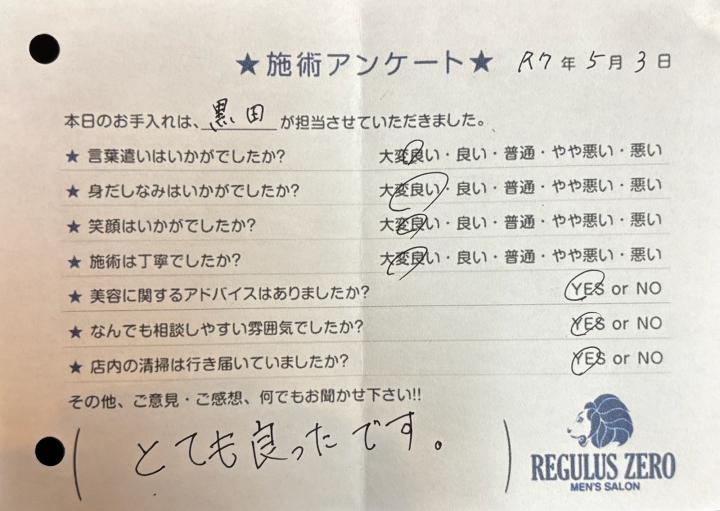 ★施術アンケート★ R7年5月3日
本日のお手入れは、黒田が担当させていただきました。
★ 言葉遣いはいかがでしたか? 大変良い・良い・普通・やや悪い・悪い
★ 身だしなみはいかがでしたか? 大変良い・良い・普通・やや悪い・悪い
★ 笑顔はいかがでしたか? 大変良い・良い・普通・やや悪い・悪い
★ 施術は丁寧でしたか? 大変良い・良い・普通・やや悪い・悪い
★ 美容に関するアドバイスはありましたか? YES or NO
★ なんでも相談しやすい雰囲気でしたか? YES or NO
★ 店内の清掃は行き届いていましたか? YES or NO
その他、ご意見・ご感想、何でもお聞かせ下さい!!
(とても良ったです。)
REGULUS ZERO
MEN'S SALON